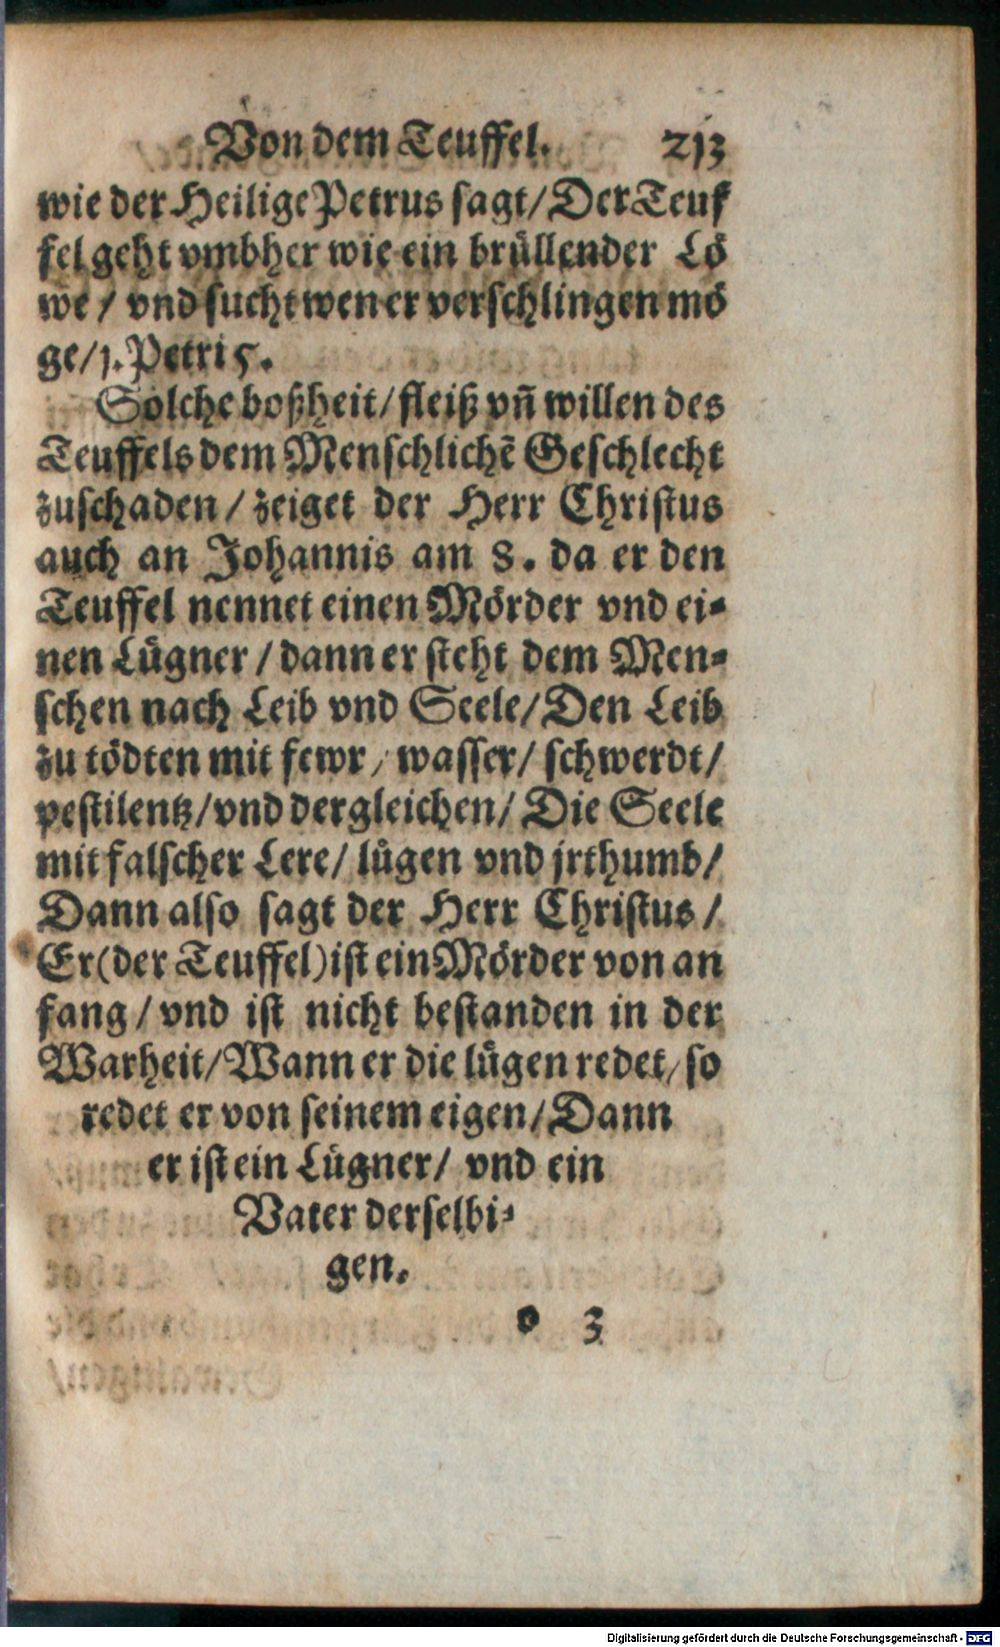 Von dem Teuffel. 213
wie der Heilige Petrus sagt/Der Teuf
fel geht vmbher wie ein brüllender Lö
we / vnd sucht wen er verschlingen mö
ge/1. Petri 5.
Solche boßheit/fleiß vñ willen des
Teuffels dem Menschlichẽ Geschlecht
zuschaden / zeiget der Herr Christus
auch an Johannis am 8. da er den
Teuffel nennet einen Mörder vnd ei-
nen Lügner / dann er steht dem Men-
schen nach Leib vnd Seele/Den Leib
zu tödten mit fewr / wasser/ schwerdt/
pestilentz/vnd dergleichen/ Die Seele
mit falscher Lere/ lügen vnd jrthumb/
Dann also sagt der Herr Christus /
Er(der Teuffel)ist ein Mörder von an
fang / vnd ist nicht bestanden in der
Warheit/Wann er die lügen redet/so
redet er von seinem eigen/Dann
er ist ein Lügner/ vnd ein
Vater derselbi-
gen.
o 3
Digitalisierung gefördert durch die Deutsche Forschungsgemeinschaft - DFG